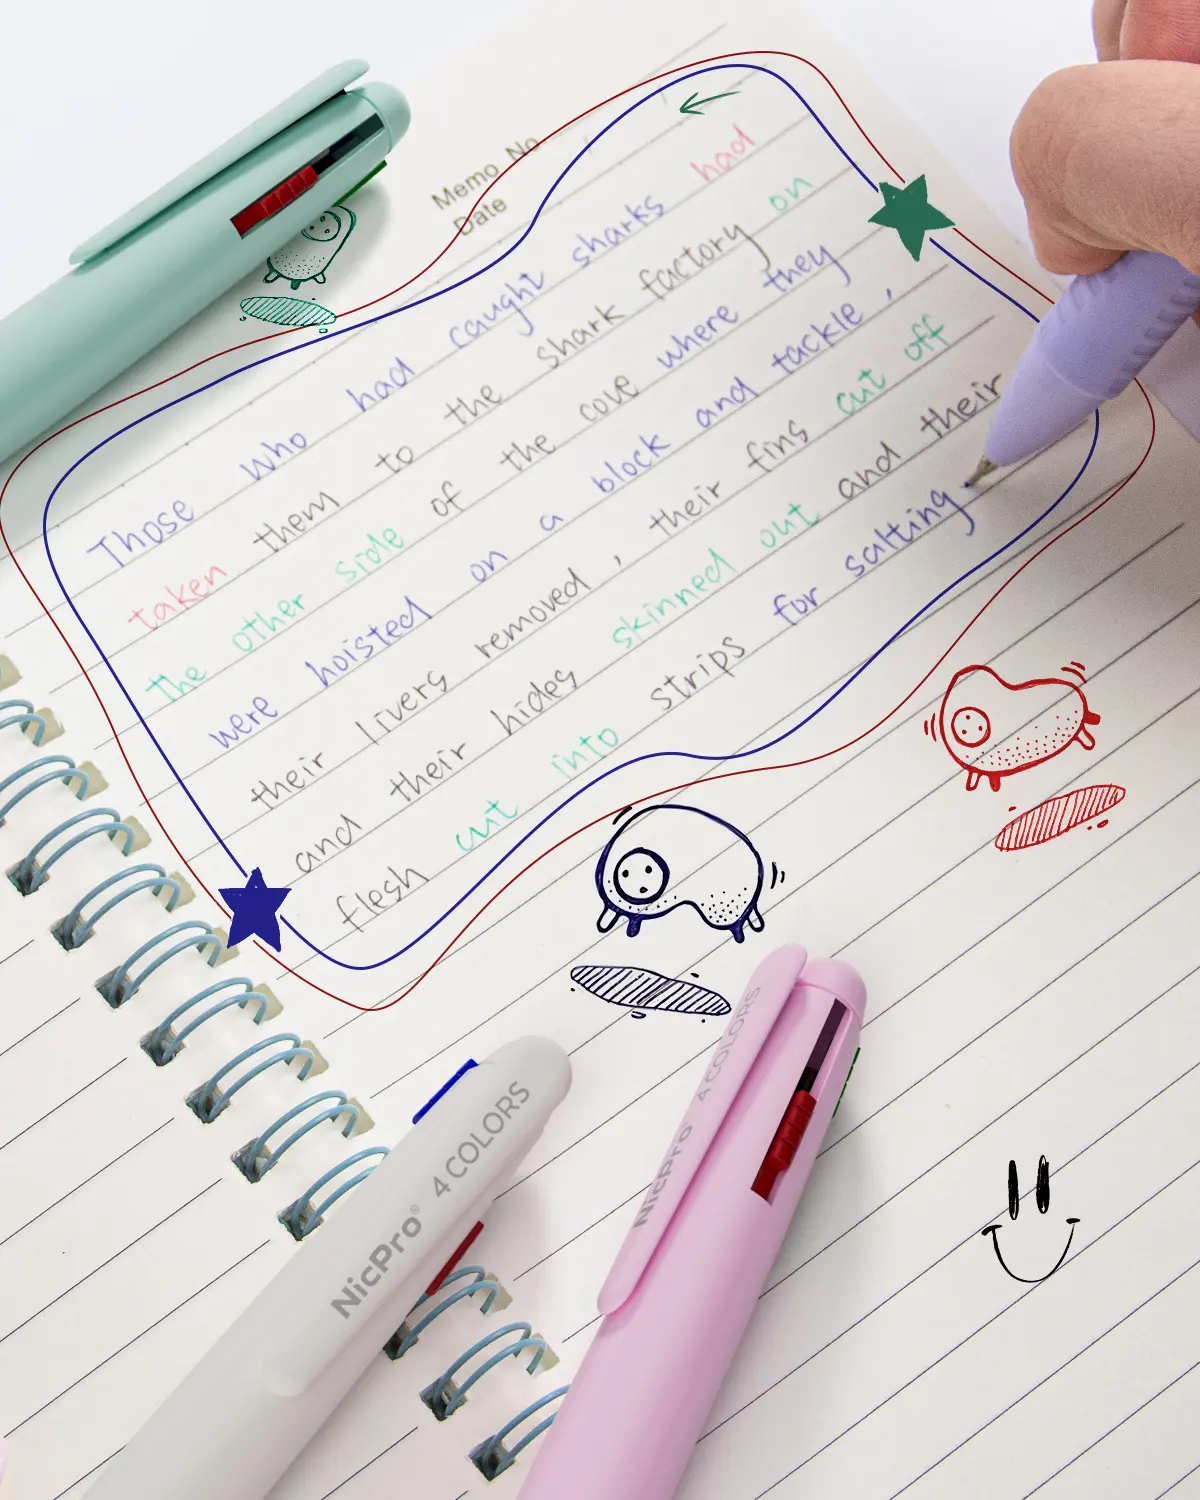 Memo No
Date
Those who had caught sharks had
taken them to the shark factory on
the other side of the cove where they
were hoisted on a block and tackle,
their livers removed, their fins cut off
and their hides skinned out and their
flesh cut into strips for salting
NicPro® 4 COLORS
NicPro 4 COLORS